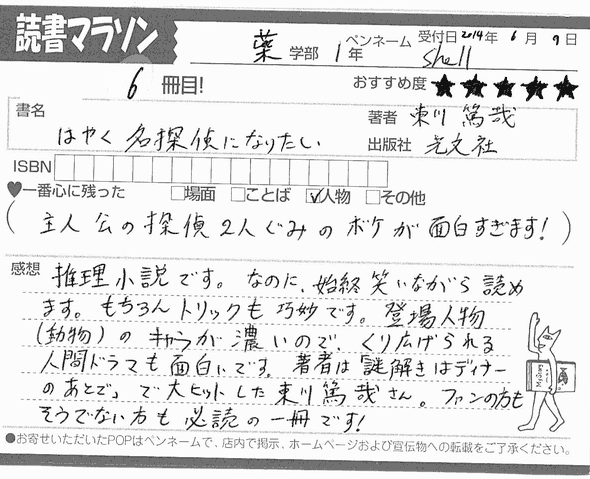 読書マラソン
薬 学部 1年 ペンネーム shell 受付日 2014年 6月 9日
6 冊目! おすすめ度 ★★★★★
書名 はやく名探偵になりたい
著者 東川篤哉
出版社 光文社
ISBN
♥一番心に残った □場面 □ことば ☑人物 □その他
(主人公の探偵2人ぐみのボケが面白すぎます!)
感想 推理小説です。なのに、始終笑いながら読め
ます。もちろんトリックも巧妙です。登場人物
(動物)のキャラが濃いので、くり広げられる
人間ドラマも面白いです。著者は「謎解きはディナー
のあとで」で大ヒットした東川篤哉さん。ファンの方も
そうでない方も必読の一冊です!
●お寄せいただいたPOPはペンネームで、店内で掲示、ホームページおよび宣伝物への転載をご了承ください。